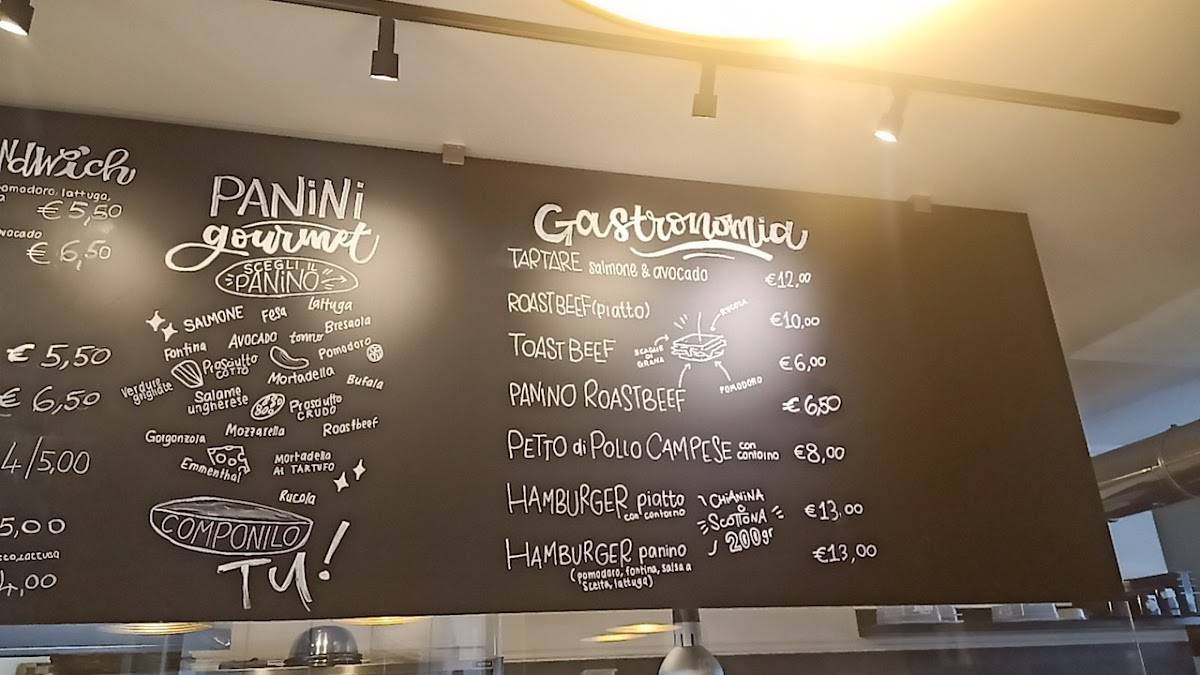 ndwich
pomodoro, lattuga,
€ 5,50
€ 6,50
€ 5,50
€ 6,50
4/5,00
5,00
4,00
PANINI
gourmet
SCEGLI IL
PANINO
lattuga
SALMONE Fesa
Bresaola
Fontina AVOCADO tonno
Pomodoro
Prosciutto
COTTO
Mortadella
Bufala
Verdure
grigliate
Salame
ungherese
Prosciutto
CRUDO
Gorgonzola Mozzarella Roastbeef
Emmenthal
Mortadella
AL TARTUFO
Rucola
COMPONILO
TU!
Gastronomia
TARTARE salmone & avocado €12,00
ROASTBEEF (piatto) €10,00
RUCOLA
TOAST BEEF €6,00
SCAGLIE
DI
GRANA
POMODORO
PANINO ROASTBEEF €6,50
PETTO di POLLO CAMPESE con contorno €8,00
HAMBURGER piatto €13,00
con contorno
CHIANINA
SCOTTONA
200gr
HAMBURGER panino €13,00
(pomodoro, fontina, salsa a
scelta, lattuga)